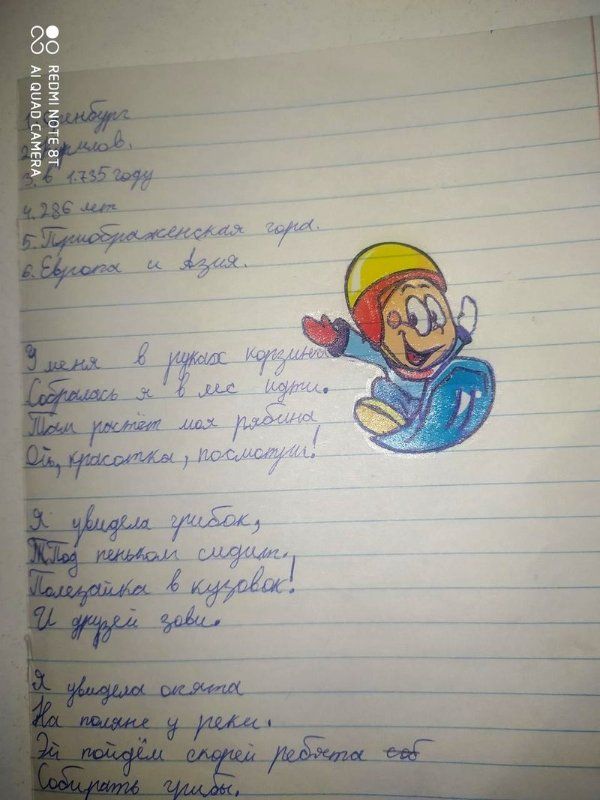 REDMI NOTE 8T
AI QUAD CAMERA
1. Оренбург
2. Кирилов.
3. в 1.735 году
4. 286 лет
5. Приображенская гора.
6. Европа и Азия.
У меня в руках корзина
Собралась я в лес идти.
Там растёт моя рябина
Ой, красотка, посмотри!
Я увидела грибок,
Под пеньком сидит.
Полезайка в кузовок!
И друзей зови.
Я увидела опята
На поляне у реки.
Эй пойдём скорей ребята соб
Собирать грибы.